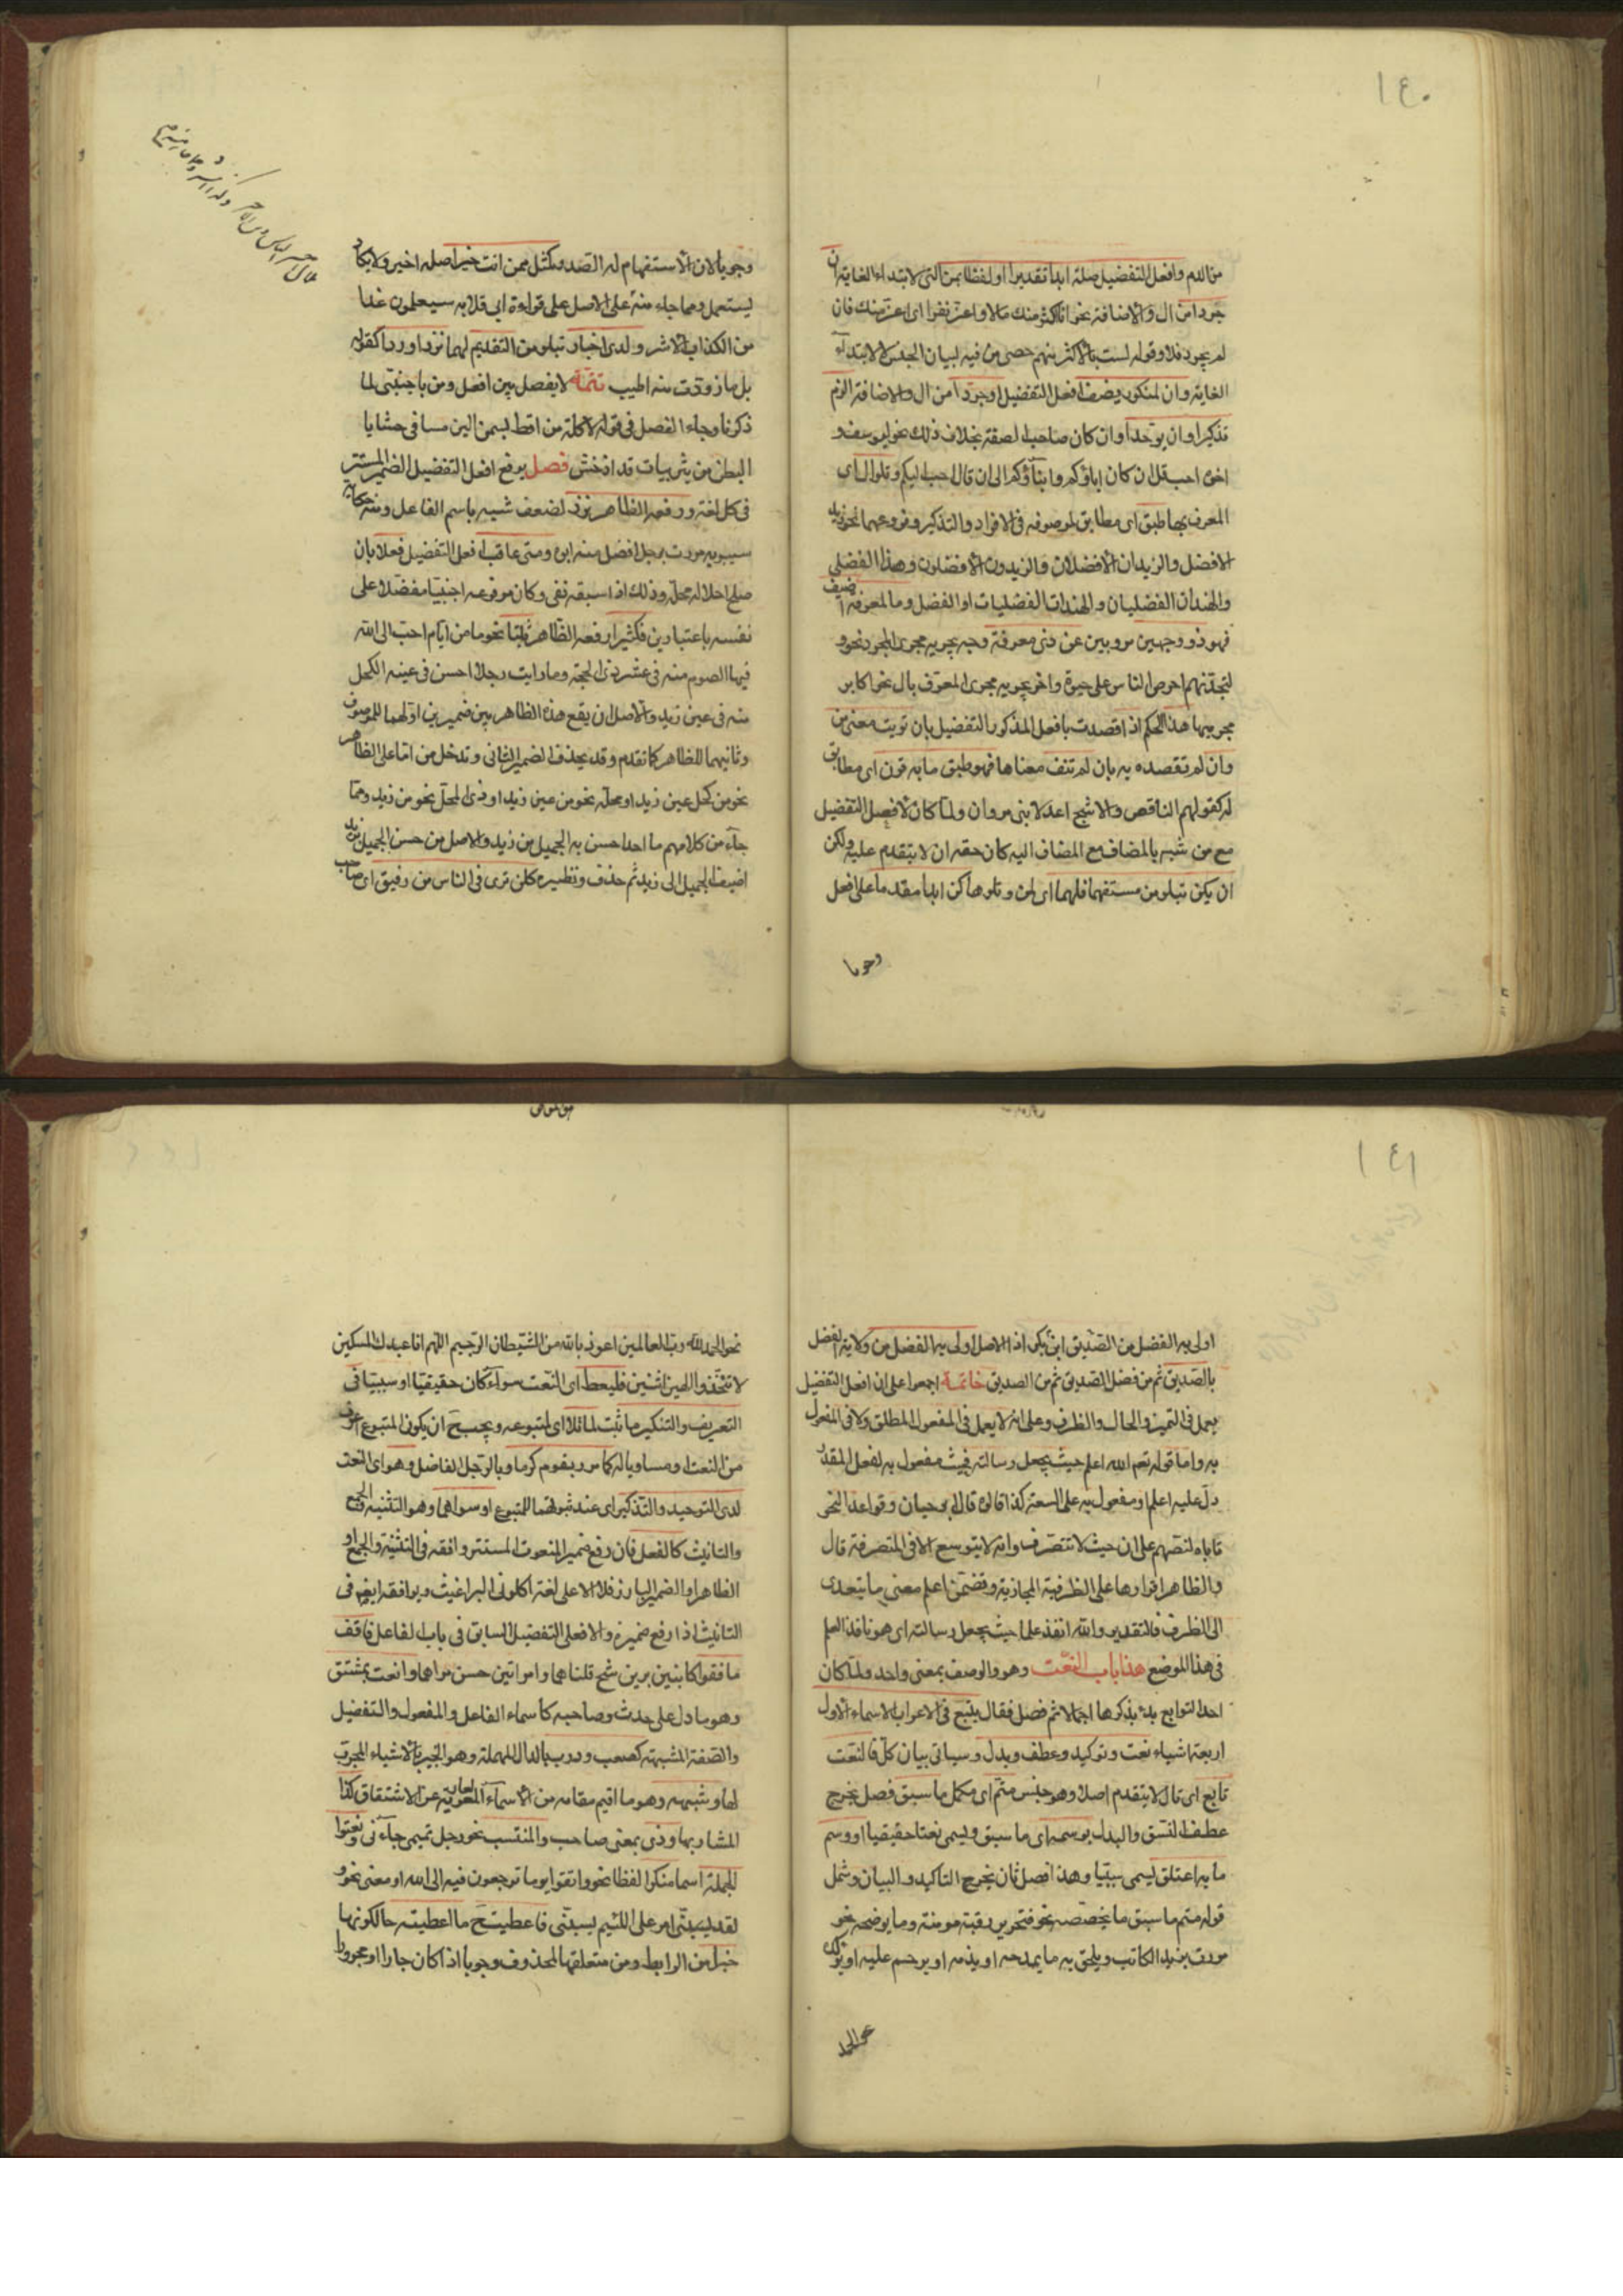 ١٤٠
من الدم وافعل التفضيل صله ابدا تقديرا او لفظا بمن التي لابتداء الغاية ان
جردا من ال والاضافة نحو انا اكثر منك مالا واعز نفرا اى اعز منك فان
لم يجرد فلا وقوله لست بالاكثر منهم حصى من فيه لبيان الجنس لا لابتداء
الغاية وان لمنكور يضف افعل التفضيل او جردا من ال والاضافة الزم
تذكيرا وان يوحدا وان كان صاحب الصفة بخلاف ذلك نحو ليوسف و
اخوه احب قل ان كان اباؤكم وابناؤكم الى ان قال احب اليكم وتلو ال اى
المعرف بها طبق اى مطابق لموصوفه فى الافراد والتذكير وفروعهما نحو زيد
الافضل والزيدان الافضلان والزيدون الافضلون وهند الفضلى
والهندان الفضليان والهندات الفضليات او الفضل وما لمعرفة اضيف
فهو ذو وجهين مرويين عن ذى معرفة وجه يجريه مجرى المجرد نحو و
لتجدنهم احرص الناس على حيوة واخر يجريه مجرى المعرف بال نحو اكابر
مجرميها هذا الحكم اذا قصدت بافعل المذكور التفضيل بان نويت معنى من
وان لم تقصده به بان لم تنف معناها فهو طبق ما به قرن اى مطابق
له كقولهم الناقص والاشج اعدلا بنى مروان ولما كان لافعل التفضيل
مع من شبه بالمضاف مع المضاف اليه كان حقه ان لا يتقدم عليه ولكن
ان يكن بتلو من مستفهما فلهما اى لمن وتلوها كن ابدا مقدما على افعل
وجوبا
وجوبا لان الاستفهام له الصدر كمثل ممن انت خير اصله اخير ولا يكاد
يستعمل ومما جاء منه على الاصل على قراءة ابى قلابه سيعلمون غدا
من الكذاب الاشر ولدى اخبار بتلو من التقديم لهما نزرا وردا كقوله
بل ما زودت منه اطيب تتمة لا يفصل بين افعل ومن باجنبى لما
ذكرنا وجاء الفصل فى قوله لاكلة من اقط بسمن الين مسا فى حشايا
البطن من يثربيات قذاذ خشن فصل يرفع افعل التفضيل الضمير المستتر
فى كل لغة ورفعه الظاهر نزر لضعف شبهه باسم الفاعل ومنه حكاية
سيبويه مررت برجل افضل منه ابوه ومتى عاقب افعل التفضيل فعلا بان
صلح احلاله محله وذلك اذا سبقه نفى وكان مرفوعه اجنبيا مفضلا على
نفسه باعتبارين فكثيرا رفعه الظاهر ثبتا نحو ما من ايام احب الى الله
فيها الصوم منه فى عشر ذى الحجة وما رايت رجلا احسن فى عينه الكحل
منه فى عين زيد والاصل ان يقع هذا الظاهر بين ضميرين اولهما للموصوف
وثانيهما للظاهر كما تقدم وقد يحذف الضمير الثانى وتدخل من اما على الظاهر
نحو من كحل عين زيد او محله نحو من عين زيد او ذى المحل نحو من زيد ومما
جاء من كلامهم ما احد احسن به الجميل من زيد والاصل من حسن الجميل بزيد
اضيف الجميل الى زيد ثم حذف ونظيره كلن ترى فى الناس من رفيق اى صاحب
١٤١
اولى به الفضل من الصديق ابى بكر اذ الاصل اولى به الفضل من ولاية الفضل
بالصديق ثم من فضل الصديق ثم من الصديق خاتمة اجمعوا على ان افعل التفضيل
يعمل فى التميز والحال والظرف وعلى انه لا يعمل فى المفعول المطلق ولا فى المفعول
به واما قوله تعم الله اعلم حيث يجعل رسالته فحيث مفعول به لفعل مقدر
دل عليه اعلم او مفعول به على السعة كذا قالوه قال ابو حيان وقواعد النحو
تاباه لنصهم على ان حيث لا تتصرف وانه لا يتوسع الا فى المتصرفة قال
والظاهر اقرارها على الظرفية المجازية وتضمن اعلم معنى ما يتعدى
الى الظرف فالتقدير والله انفذ علما حيث يجعل رسالته اى هو نافذ العلم
فى هذا الموضع هذا باب النعت وهو والوصف بمعنى واحد ولما كان
احد التوابع بدء بذكرها اجمالا ثم فصل فقال يتبع فى الاعراب الاسماء الاول
اربعة اشياء نعت وتوكيد وعطف وبدل وسياتى بيان كل فالنعت
تابع اى تال لا يتقدم اصلا وهو جنس متم اى مكمل ما سبق فصل يخرج
عطف النسق والبدل بوسمه اى ما سبق ويسمى نعتا حقيقيا او وسم
ما به اعتلق يسمى سببيا وهذا فصل ثان يخرج التاكيد والبيان وشمل
قوله متم ما سبق ما يخصصه نحو فتحرير رقبة مومنة وما يوضحه نحو
مررت بزيد الكاتب ويلحق به ما يمدحه او يذمه او يرحم عليه او يؤكده
نحو الحمد
نحو الحمد لله رب العالمين اعوذ بالله من الشيطان الرجيم اللهم انا عبدك المسكين
لا تتخذوا الهين اثنين فليعط اى النعت سواء كان حقيقيا او سببيا فى
التعريف والتنكير ما ثبت لما تلا اى لمتبوعه ويجب ح ان يكون المتبوع اعرف
من النعت او مساويا له كامرر بقوم كرما وبالرجل الفاضل وهو اى النعت
لدى التوحيد والتذكير اى عند ثبوتهما للمتبوع او سواهما وهو التثنية والجمع
والتانيث كالفعل فان رفع ضمير المنعوت المستتر وافقه فى التثنية والجمع او
الظاهر او الضمير البارز فلا الا على لغة اكلونى البراغيث ويوافقه ايضا فى
التانيث اذا رفع ضميره والا فعلى التفصيل السابق فى باب الفاعل فاقف
ما قفوا كابنين برين شج قلباهما وامراتين حسن مراهما وانعت بمشتق
وهو ما دل على حدث وصاحبه كاسماء الفاعل والمفعول والتفضيل
والصفة المشبهة كصعب وذرب بالدال المهملة وهو الخبير بالاشياء المجرب
لها وشبهه وهو ما اقيم مقامه من الاسماء العارية عن الاشتقاق كذا
المشار بها وذى بمعنى صاحب والمنتسب نحو رجل تميمى جاءنى ونعتوا
بجملة اسما منكرا لفظا نحو واتقوا يوما ترجعون فيه الى الله او معنى نحو و
لقد امر على اللئيم يسبنى فاعطيت ح ما اعطيته حالكونها
خبرا من الرابط ومن متعلقها المحذوف وجوبا اذا كان جارا او مجرورا